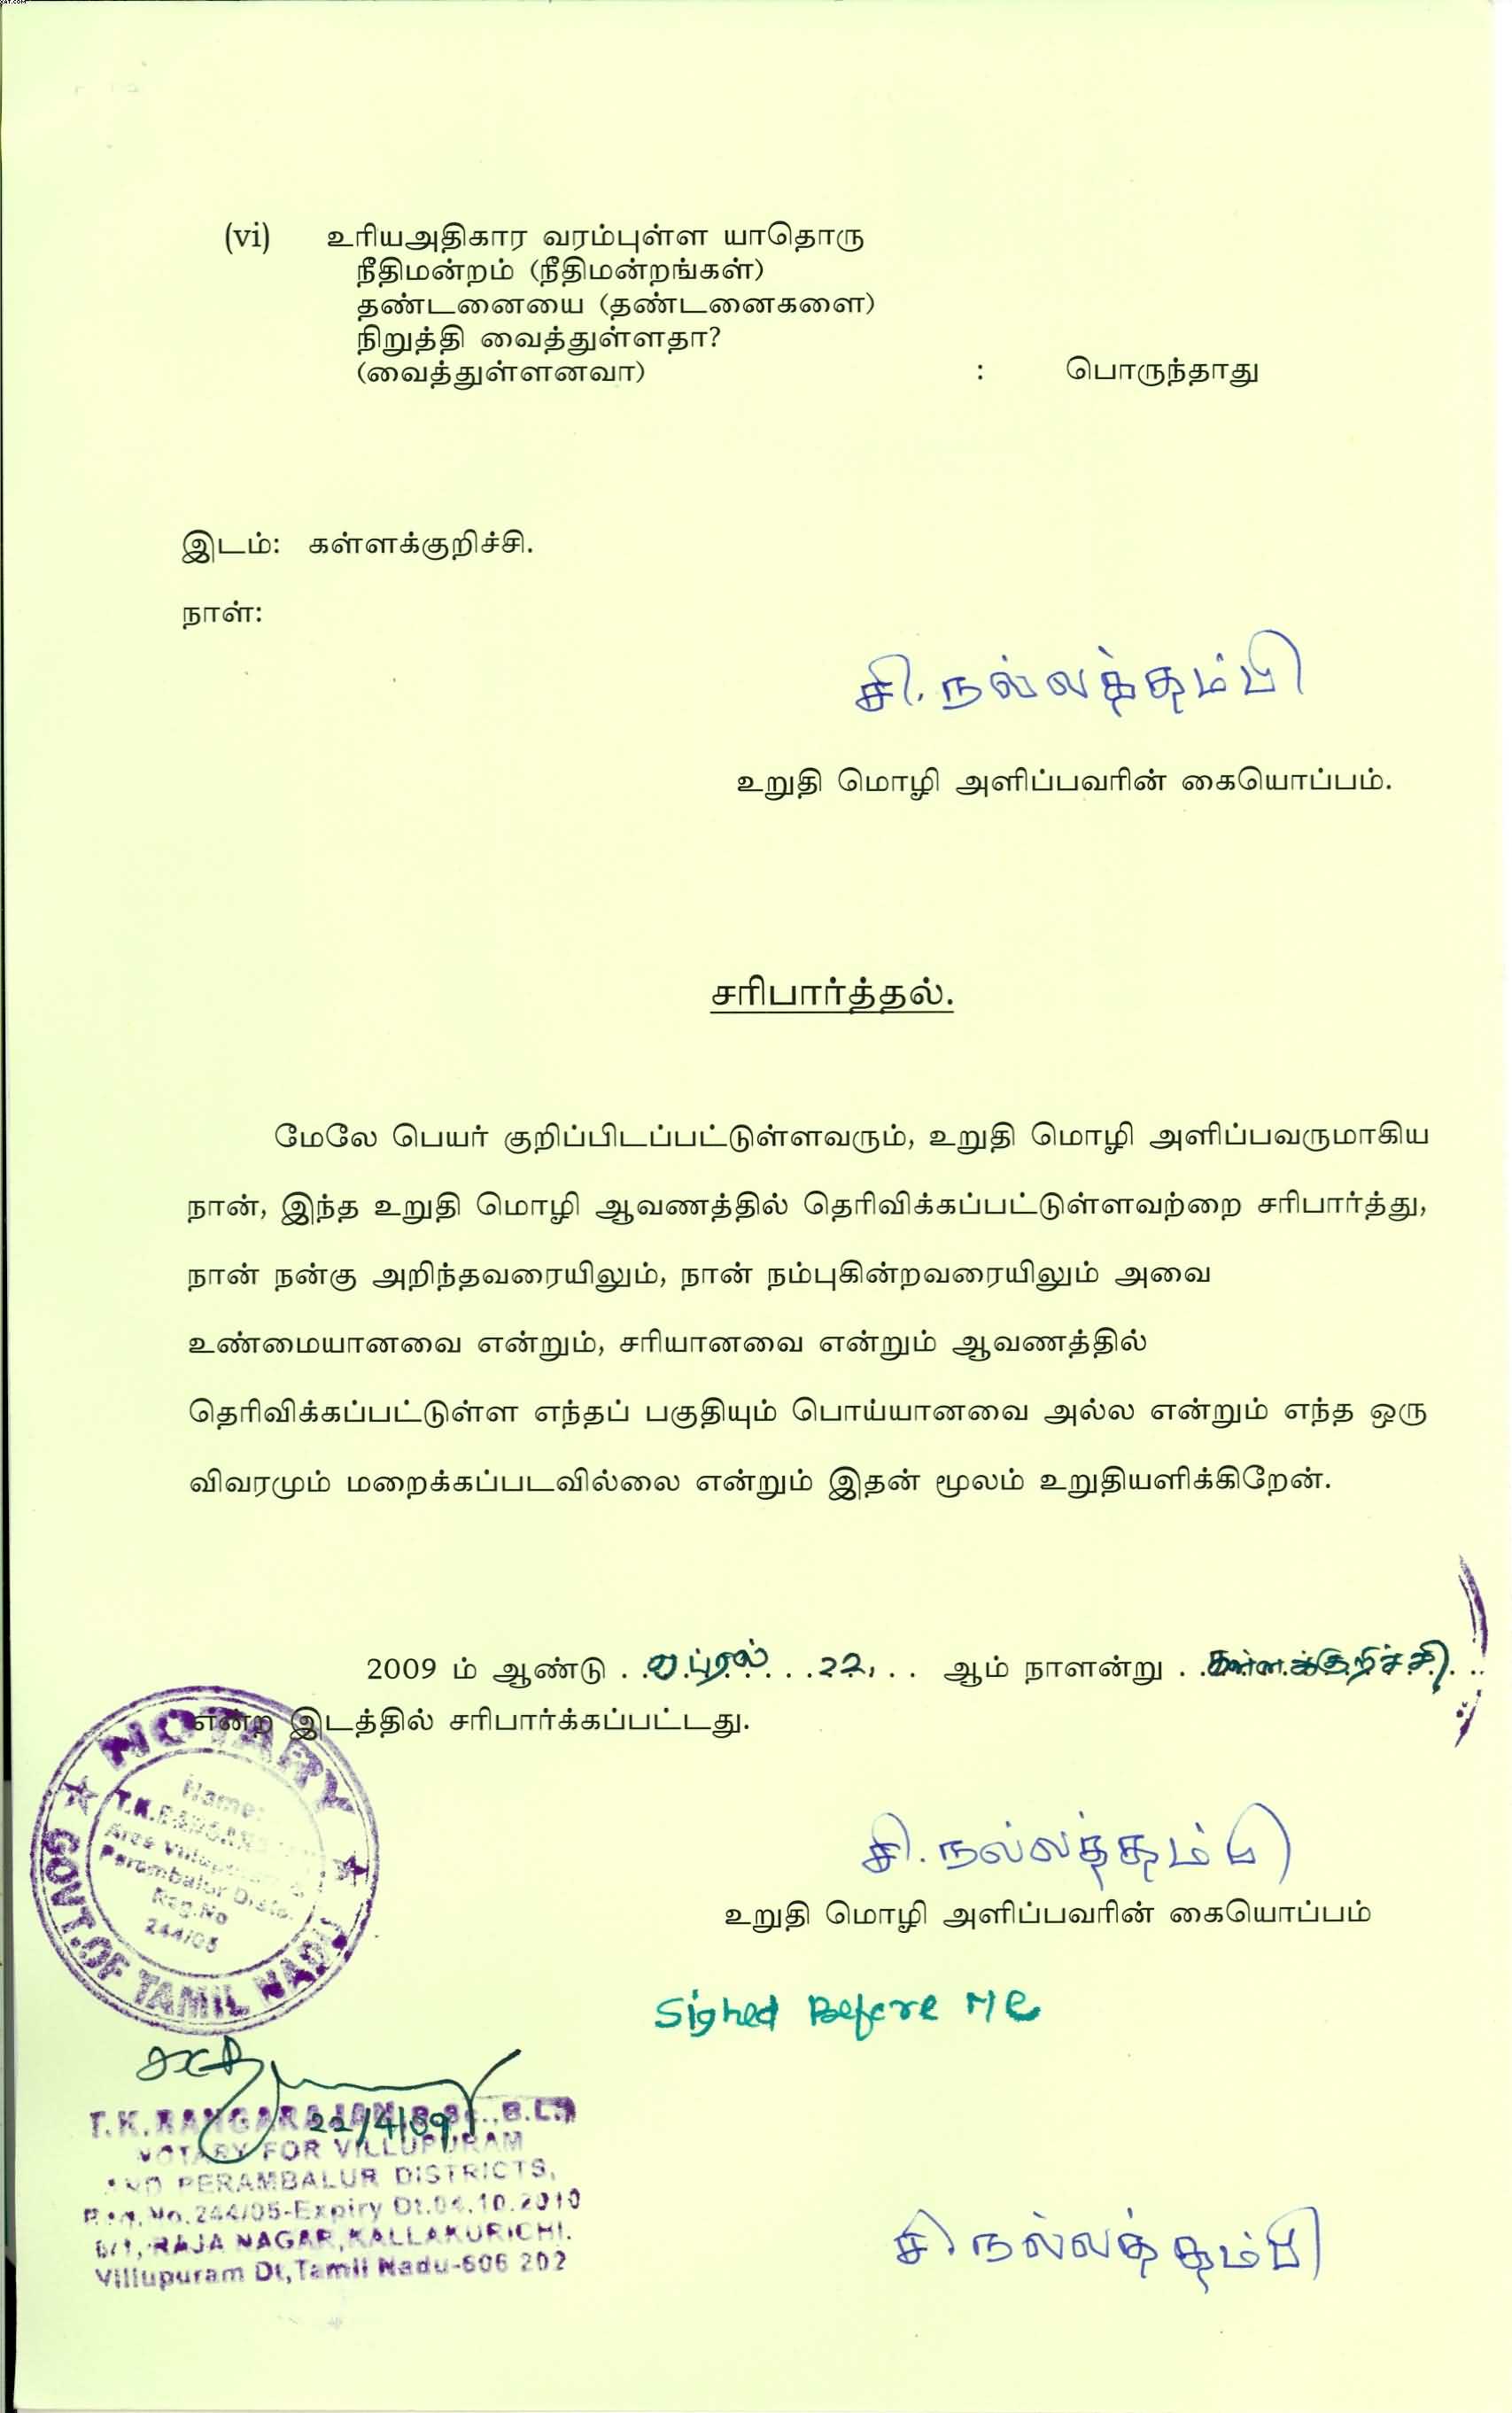 (vi) உரியஅதிகார வரம்புள்ள யாதொரு
நீதிமன்றம் (நீதிமன்றங்கள்)
தண்டனையை (தண்டனைகளை)
நிறுத்தி வைத்துள்ளதா?
(வைத்துள்ளனவா) : பொருந்தாது
இடம்: கள்ளக்குறிச்சி.
நாள்:
சி. நல்லத்தம்பி
உறுதி மொழி அளிப்பவரின் கையொப்பம்.
சரிபார்த்தல்.
மேலே பெயர் குறிப்பிடப்பட்டுள்ளவரும், உறுதி மொழி அளிப்பவருமாகிய
நான், இந்த உறுதி மொழி ஆவணத்தில் தெரிவிக்கப்பட்டுள்ளவற்றை சரிபார்த்து,
நான் நன்கு அறிந்தவரையிலும், நான் நம்புகின்றவரையிலும் அவை
உண்மையானவை என்றும், சரியானவை என்றும் ஆவணத்தில்
தெரிவிக்கப்பட்டுள்ள எந்தப் பகுதியும் பொய்யானவை அல்ல என்றும் எந்த ஒரு
விவரமும் மறைக்கப்படவில்லை என்றும் இதன் மூலம் உறுதியளிக்கிறேன்.
2009 ம் ஆண்டு . ஏப்ரல் . . . 22 . . . ஆம் நாளன்று . . கள்ளக்குறிச்சி . . .
என்ற இடத்தில் சரிபார்க்கப்பட்டது.
NOTARY
Name:
Perambalur Dists.
Reg.No
244/05
GOVT.OF TAMIL NADU
சி. நல்லத்தம்பி
உறுதி மொழி அளிப்பவரின் கையொப்பம்
Signed Before Me
T.K.RANGARAJAN B.Sc., B.L.,
22/4/09
NOTARY FOR VILLUPURAM
AND PERAMBALUR DISTRICTS,
Reg.No.244/05-Expiry Dt.04.10.2010
6/1, RAJA NAGAR, KALLAKURICHI.
Villupuram Dt, Tamil Nadu-606 202
சி. நல்லத்தம்பி